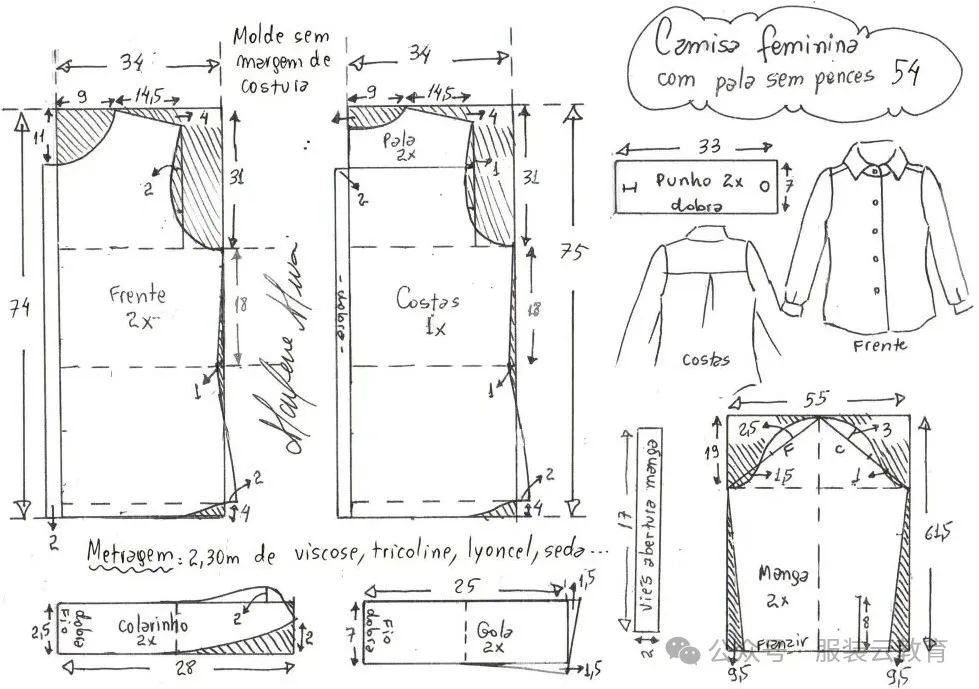 Molde sem
margem de
costura
Camisa feminina
com pala sem pences 54
34
9
14,5
4
11
2
31
74
Frente
2x
18
1
2
4
2
Marlene Mukai
34
9
14,5
4
Pala
2x
1
2
31
75
- dobra -
Costas
1x
18
1
2
4
33
Punho 2x
dobra
7
Costas
Frente
Metragem: 2,30m de viscose, tricoline, lyoncel, seda...
2,5
Fio
dobra
Colarinho
2x
2
2
28
25
7
Fio
dobra
Gola
2x
1,5
1,5
17
Viés abertura manga
2
55
19
2,5
F
C
3
1,5
1
61,5
Manga
2x
8
Franzir
9,5
9,5
公众号 · 服装云教育